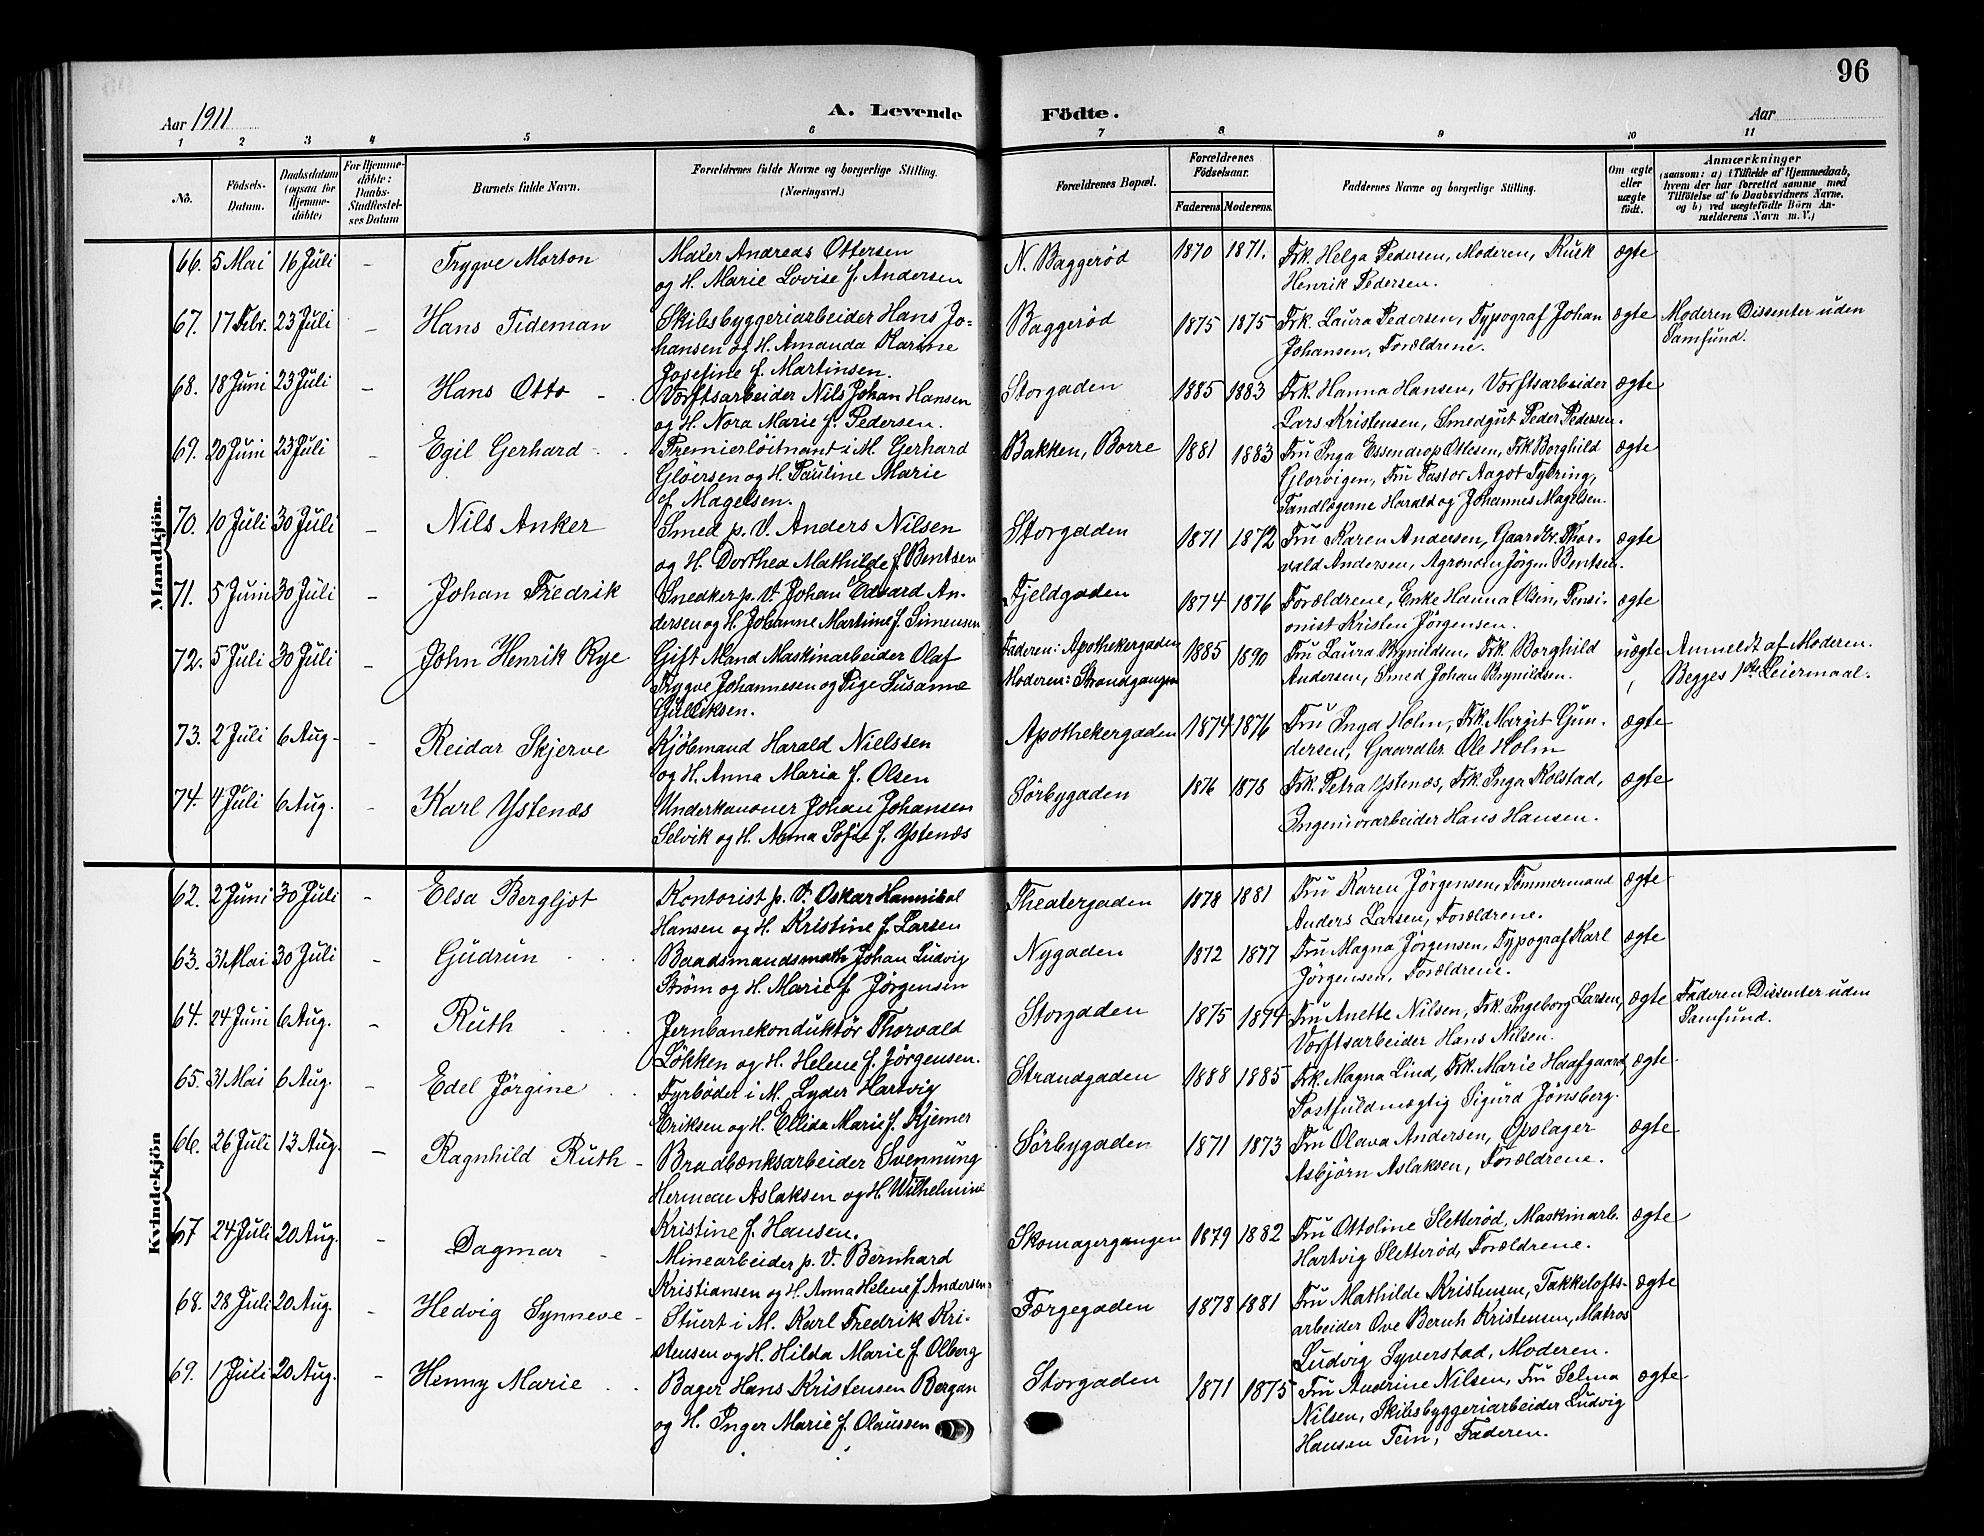 96
Aar 1911
A. Levende Födte.
Aar
1 2 3 4 5 6 7 8 9 10 11
No. | Födsels-Datum. | Daabsdatum (ogsaa for Hjemme-döbte) | For Hjemme-döbte: Daabs-Stadfæstel-ses Datum | Barnets fulde Navn. | Forældrenes fulde Navne og borgerlige Stilling. (Næringsvei.) | Forældrenes Bopæl. | Forældrenes Födselsaar. Faderens Moderens. | Faddernes Navne og borgerlige Stilling. | Om ægte eller uægte födt. | Anmærkninger (saasom: a) i Tilfælde af Hjemmedaab, hvem der har forrettet samme med Tilföielse af to Daabsvidners Navne, og b) ved uægtefödte Börn An-melderens Navn m. V.)
Mandkjön.
66. 5 Mai 16 Juli – Trygve Morton | Maler Andreas Ottersen og H. Marie Lovise f. Andersen | N. Baggerød | 1870 1871. | Frk. Helga Pedersen, Moderen, Kusk Henrik Pedersen. | ægte
67. 17 Febr. 23 Juli – Hans Tideman | Skibsbyggeriarbeider Hans Jo-hansen og H. Amanda Karine Josefine f. Martinsen. | Baggerød | 1875 1875 | Frk. Laura Pedersen, Typograf Johan Johansen, Forældrene. | ægte | Moderen Dissenter uden Samfund.
68. 18 Juni 23 Juli – Hans Otto | Værftsarbeider Nils Johan Hansen og H. Nora Marie f. Pedersen. | Storgaden | 1885 1883 | Frk. Hanna Hansen, Værftsarbeider Lars Kristensen, Smedgut Peder Pedersen. | ægte
69. 20 Juni 23 Juli – Egil Gerhard | Premierløitnant i M. Gerhard Gløersen og H. Pauline Marie f. Magelsen. | Bakken, Borre | 1881 1883 | Fru Inga Essendrop Ottesen, Frk Borghild Glørvigen, Fru Pastor Aagot Tybring, Tandlægerne Harald og Johannes Magelsen. | ægte
70. 10 Juli 30 Juli – Nils Anker | Smed p. V. Anders Nilsen og H. Dorthea Mathilde f. Bentsen | Storgaden | 1871 1872 | Fru Karen Andersen, Gaardbr. Thor-vald Andersen, Agronom Jörgen Bentsen. | ægte
71. 5 Juni 30 Juli – Johan Fredrik | Snedker p. V. Johan Edvard An-dersen og H. Johanne Martine f. Simensen | Fjeldgaden | 1874 1876 | Forældrene, Enke Hanna Olsen, Pensi-onist Kristen Jörgensen. | ægte
72. 5 Juli 30 Juli – John Henrik Rye | Gift Mand Maskinarbeider Olaf Trygve Johannesen og Pige Susanne Gulliksen. | Faderen: Apothekergaden Moderen: Strandgangen | 1885 1890 | Fru Laura Brynildsen, Frk Borghild Andersen, Smed Johan Brynildsen. | uægte | Anmeldt af Moderen. Begges 1ste Leiermaal.
73. 2 Juli 6 Aug. – Reidar Skjerve | Kjøbmand Harald Nielssen og H. Anna Maria f. Olsen | Apothekergaden | 1874 1876 | Fru Inga Holm, Frk. Margit Gun-dersen, Gaardbr. Ole Holm | ægte
74. 4 Juli 6 Aug. – Karl Ystenæs | Underkanoner Johan Johansen Selvik og H. Anna Sofie f. Ystenæs | Sörbygaden | 1876 1878 | Frk. Petra Ystenæs, Frk. Inga Kolstad, Ingeniörarbeider Hans Hansen. | ægte
Kvindekjön
62. 2 Juni 30 Juli – Elsa Bergljot | Kontorist p. V. Oskar Hannibal Hansen og H. Kristine f. Larsen | Theatergaden | 1878 1881 | Fru Karen Jörgensen, Tömmermand Anders Larsen, Forældrene. | ægte
63. 31 Mai 30 Juli – Gudrun | Baadsmandsmath Johan Ludvig Strøm og H. Marie f. Jörgensen | Nygaden | 1872 1877 | Fru Magna Jörgensen, Typograf Karl Jörgensen, Forældrene. | ægte
64. 24 Juni 6 Aug. – Ruth | Jernbanekonduktör Thorvald Løkken og H. Helene f. Jörgensen. | Storgaden | 1875 1874 | Fru Anette Nilsen, Frk. Ingeborg Larsen, Værftsarbeider Hans Nilsen. | ægte | Faderen Dissenter uden Samfund.
65. 31 Mai 6 Aug. – Edel Jörgine | Fyrbøder i M. Lyder Hartvig Eriksen og H. Ellida Marie f. Kjemer | Strandgaden | 1888 1885 | Frk. Magna Lind, Frk. Marie Haafgaard, Postfuldmægtig Sigurd Jönsberg. | ægte
66. 26 Juli 13 Aug. – Ragnhild Ruth | Bradbænksarbeider Svennung Herman Aslaksen og H. Wilhelmine Kristine f. Hansen. | Sörbygaden | 1871 1873 | Fru Olava Andersen, Opslager Asbjörn Aslaksen, Forældrene. | ægte
67 24 Juli 20 Aug. – Dagmar | Minearbeider p. V. Bernhard Kristiansen og H. Anna Helene f. Andersen | Skomagergangen | 1879 1882 | Fru Ottoline Sletterød, Maskinarb. Hartvig Sletterød, Forældrene. | ægte
68. 28 Juli 20 Aug. – Hedvig Synneve | Stuert i M. Karl Fredrik Kri-stensen og H. Hilda Marie f. Olberg | Færgegaden | 1878 1881 | Fru Mathilde Kristensen, Takkelofts-arbeider Ove Bernh Kristensen, Matros Ludvig Syverstad, Moderen. | ægte
69. 1 Juli 20 Aug. – Henny Marie | Bager Hans Kristensen Bergan og H. Inger Marie f. Olaussen | Storgaden | 1871 1875 | Fru Andrine Nilsen, Fru Selma Nilsen, Skibsbyggeriarbeider Ludvig Hansen Tein, Faderen. | ægte